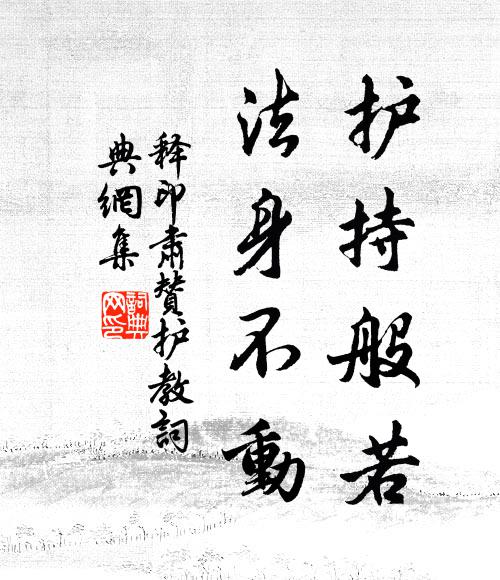 护持般若
法身不動
释印肃赞护教詞
典網集
詞典网印